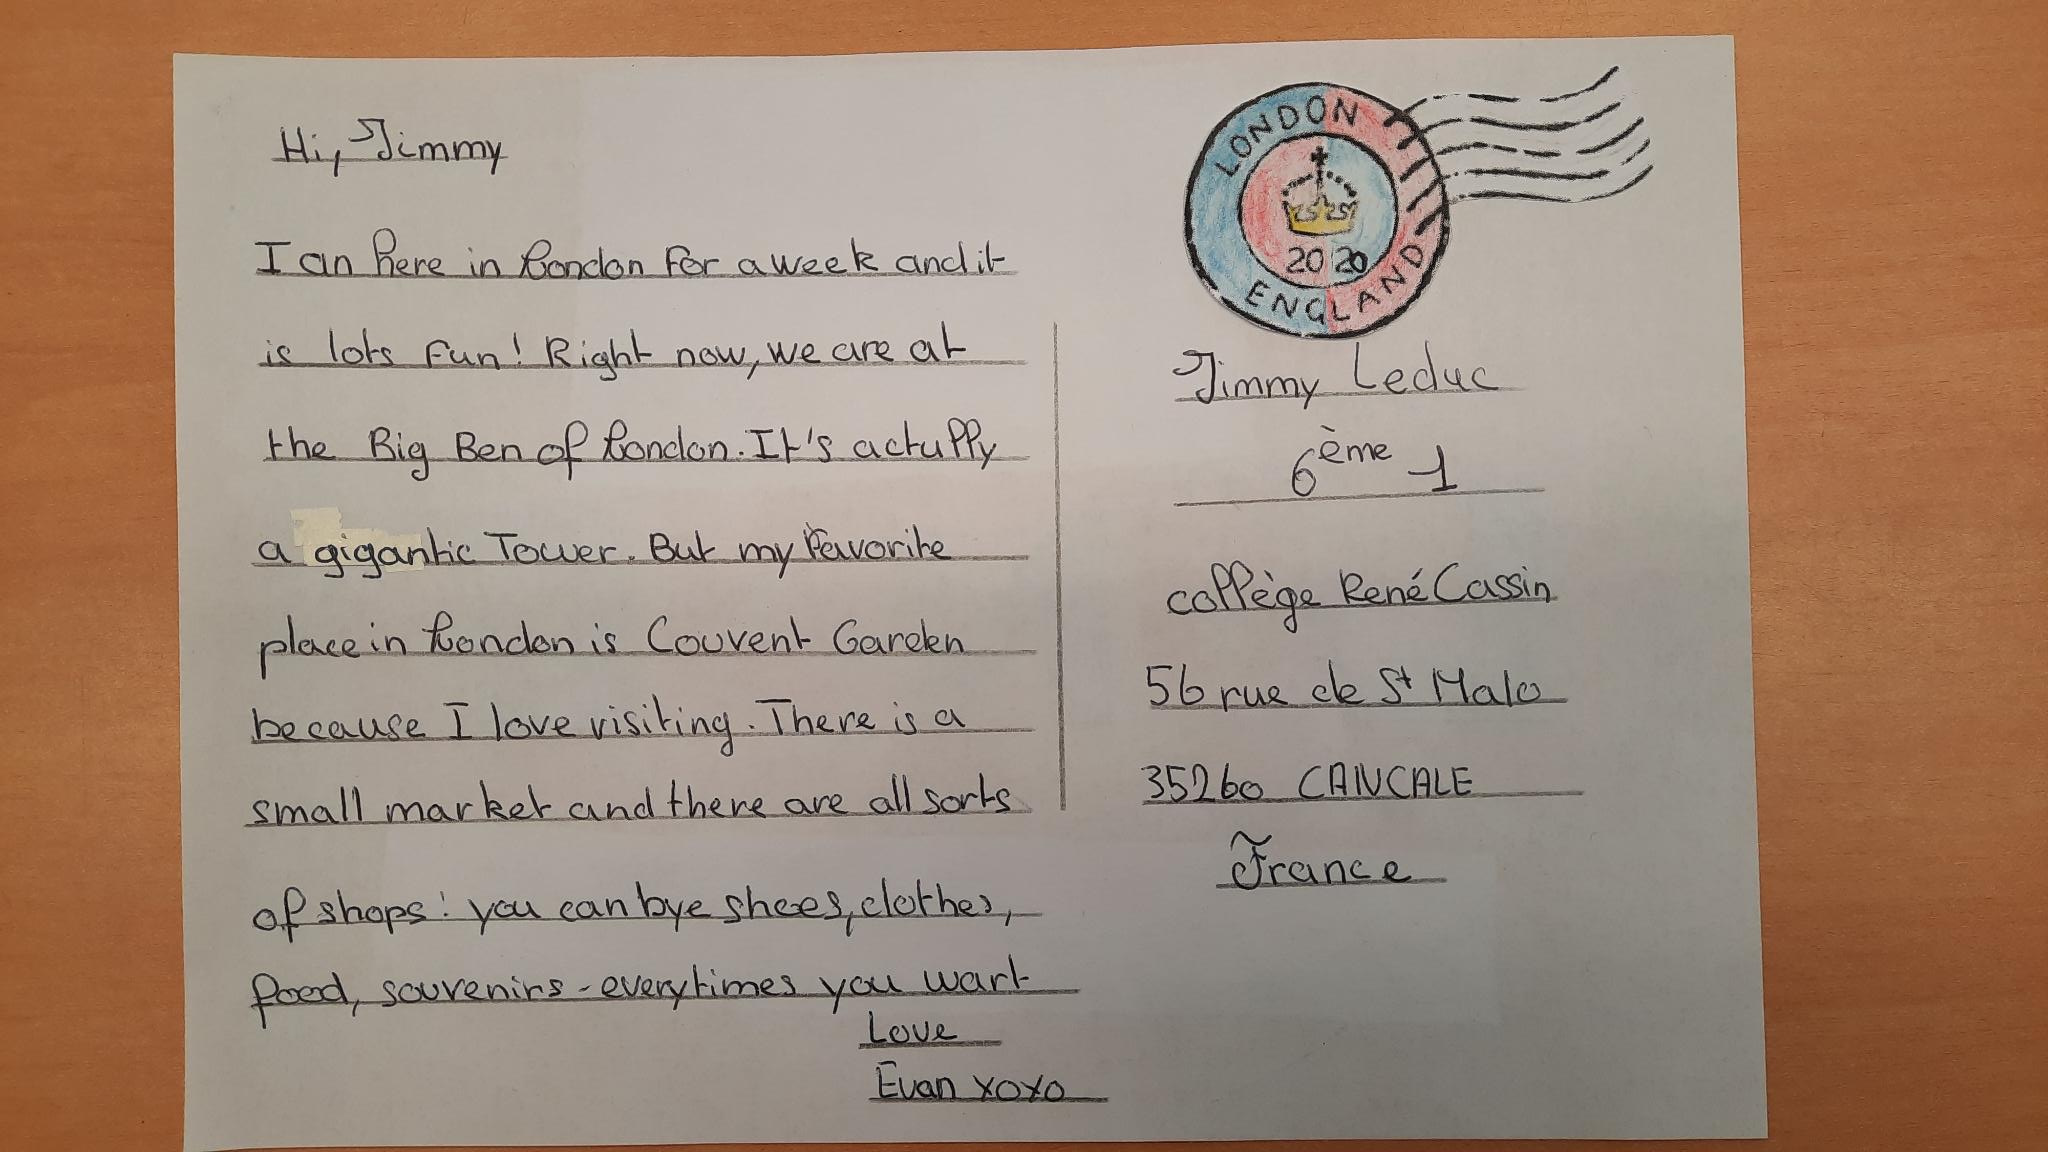 Hi, Jimmy
I an here in London for a week and it
is lots fun! Right now, we are at
the Big Ben of London. It's actully
a gigantic Tower. But my favorite
place in London is Couvent Garden
because I love visiting. There is a
small market and there are all sorts
of shops: you can bye shoes, clothes,
food, souvenirs - everytimes you want
Love
Evan xoxo
LONDON
2020
ENGLAND
Jimmy Leduc
6ème 1
collège René Cassin
56 rue de St Malo
35260 CANCALE
France